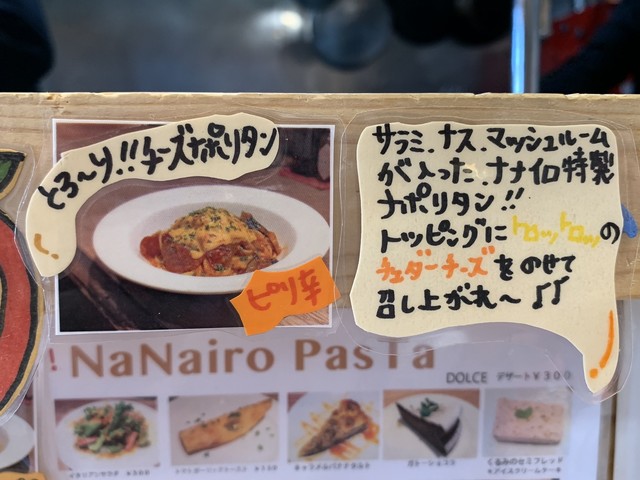 とろ〜り!!チーズナポリタン
ピリ辛
サラミ、ナス、マッシュルーム
が入った、ナナイロ特製
ナポリタン!!
トッピングにトロットロッの
チェダーチーズをのせて
召し上がれ〜♪♪
! NaNairo PasTa
DOLCE デザート¥300
イタリアンサラダ ¥300
キャラメルバナナタルト
ガトーショコラ
くるみのセミフレッド
*アイスクリームケーキ